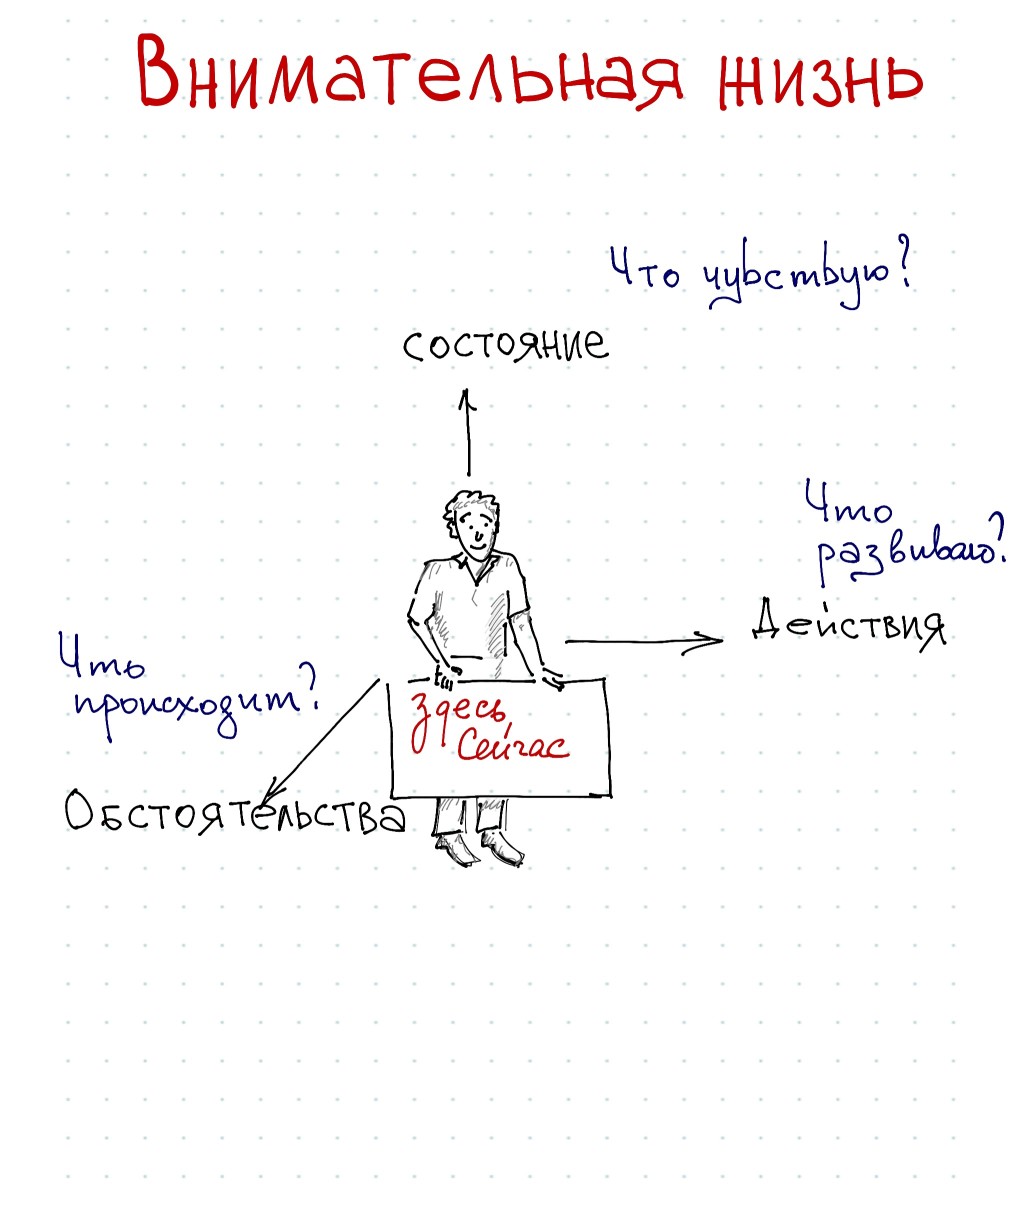 Внимательная жизнь
Что чувствую?
состояние
Что
развиваю?
Действия
Что
происходит?
Здесь,
Сейчас
Обстоятельства